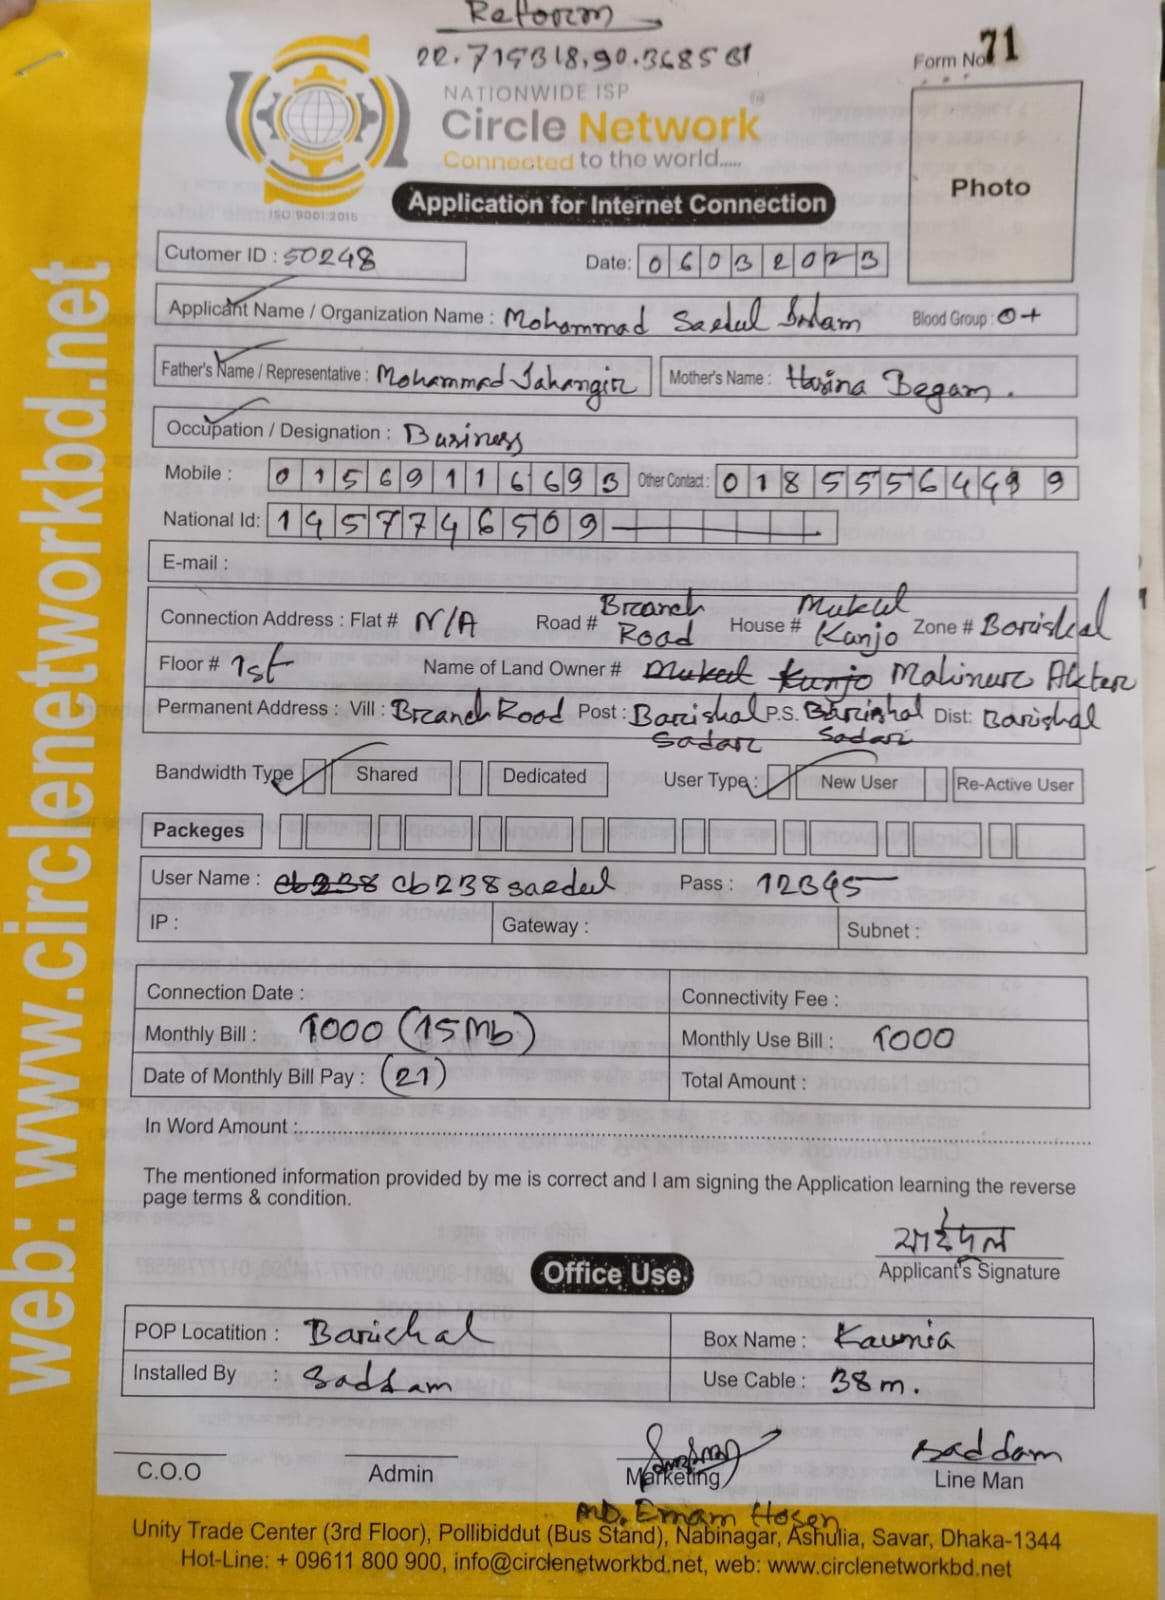 Reform
22.715318,90.368581
Form No 71
NATIONWIDE ISP
Circle Network
Connected to the world.....
ISO 9001:2015
Photo
Application for Internet Connection
Cutomer ID : 50248
Date: 06032023
Applicant Name / Organization Name : Mohammad Saedul Islam Blood Group : O+
Father's Name / Representative : Mohammad Jahangir Mother's Name : Hasina Begam .
Occupation / Designation : Business
Mobile : 01569116693 Other Contact : 018555644
National Id: 1457746509
E-mail :
Connection Address : Flat # N/A Road # Branch Road House # Mukul Kunjo Zone # Barishal
Floor # 1st Name of Land Owner # Mukul Kunjo Mahinur Akter
Permanent Address : Vill : Branch Road Post : Barishal Sadar P.S. Barishal Sadar Dist: Barishal
Bandwidth Type Shared Dedicated User Type : New User Re-Active User
Packeges
User Name : cb238 cb238saedul Pass : 12345
IP : Gateway : Subnet :
Connection Date : Connectivity Fee :
Monthly Bill : 1000 (15Mb) Monthly Use Bill : 1000
Date of Monthly Bill Pay : (21) Total Amount :
In Word Amount :
The mentioned information provided by me is correct and I am signing the Application learning the reverse
page terms & condition.
সাইদুল
Applicant's Signature
Office Use
POP Locatition : Barishal Box Name : Kaunia
Installed By : Saddam Use Cable : 38 m.
Saddam
C.O.O Admin Marketing Line Man
MD. Emam Hosen
Unity Trade Center (3rd Floor), Pollibiddut (Bus Stand), Nabinagar, Ashulia, Savar, Dhaka-1344
Hot-Line: + 09611 800 900, info@circlenetworkbd.net, web: www.circlenetworkbd.net
web: www.circlenetworkbd.net